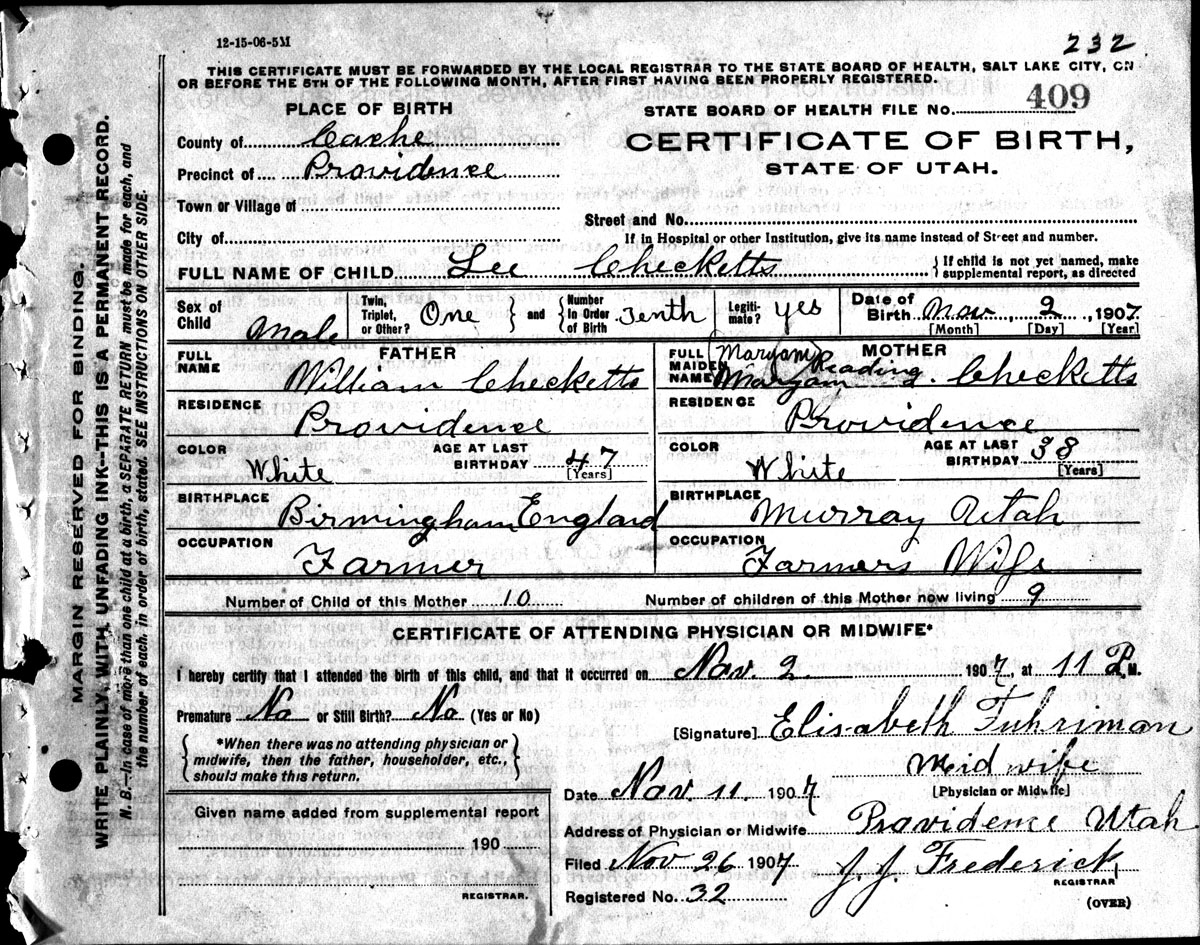 12-15-06-5M
232
THIS CERTIFICATE MUST BE FORWARDED BY THE LOCAL REGISTRAR TO THE STATE BOARD OF HEALTH, SALT LAKE CITY, ON
OR BEFORE THE 5TH OF THE FOLLOWING MONTH, AFTER FIRST HAVING BEEN PROPERLY REGISTERED.
PLACE OF BIRTH
STATE BOARD OF HEALTH FILE NO. 409
County of Cache
CERTIFICATE OF BIRTH,
Precinct of Providence
STATE OF UTAH.
Town or Village of
Street and No.
City of
If in Hospital or other Institution, give its name instead of Street and number.
FULL NAME OF CHILD Lee Checketts { If child is not yet named, make supplemental report, as directed
Sex of Child Male
Twin, Triplet, or Other? One } and { Number in Order of Birth Tenth
Legiti-mate? yes
Date of Birth Nov, 2, 1907
[Month] [Day] [Year]
FATHER
FULL NAME William Checketts
RESIDENCE Providence
COLOR White AGE AT LAST BIRTHDAY 47 [Years]
BIRTHPLACE Birmingham England
OCCUPATION Farmer
MOTHER
FULL MAIDEN NAME (Maryam Reading
Maryam Checketts
RESIDENCE Providence
COLOR White AGE AT LAST BIRTHDAY 38 [Years]
BIRTHPLACE Murray Utah
OCCUPATION Farmers Wife
Number of Child of this Mother 10 Number of children of this Mother now living 9
CERTIFICATE OF ATTENDING PHYSICIAN OR MIDWIFE*
I hereby certify that I attended the birth of this child, and that it occurred on Nov. 2 1907, at 11 P.M.
Premature No or Still Birth? No (Yes or No)
[Signature] Elisabeth Fuhriman
{ *When there was no attending physician or
midwife, then the father, householder, etc.,
should make this return. }
Mid wife
[Physician or Midwife]
Date Nov. 11. 1907
Given name added from supplemental report
190
REGISTRAR.
Address of Physician or Midwife Providence Utah
Filed Nov 26 1907 J. J. Frederick
REGISTRAR
Registered No. 32
(OVER)
MARGIN RESERVED FOR BINDING.
WRITE PLAINLY, WITH UNFADING INK--THIS IS A PERMANENT RECORD.
N. B.--In case of more than one child at a birth, a SEPARATE RETURN must be made for each, and
the number of each, in order of birth, stated. SEE INSTRUCTIONS ON OTHER SIDE.